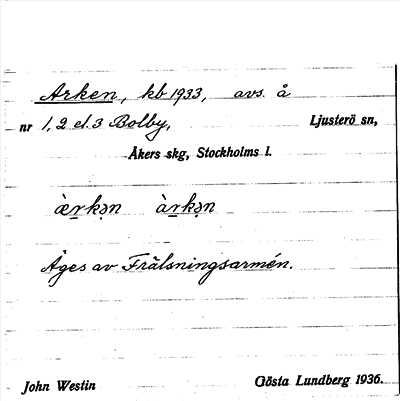 Arken, kb 1933, avs. å
nr 1, 2 el. 3 Bolby, Ljusterö sn,
Åkers skg, Stockholms l.
æ̀rkən àrkən
Äges av Frälsningsarmén.
John Westin Gösta Lundberg 1936.